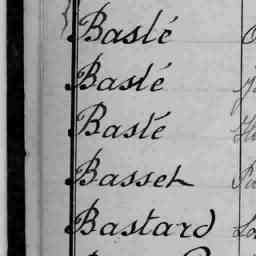 Baslé
Baslé
Baslé
Basset
Bastard